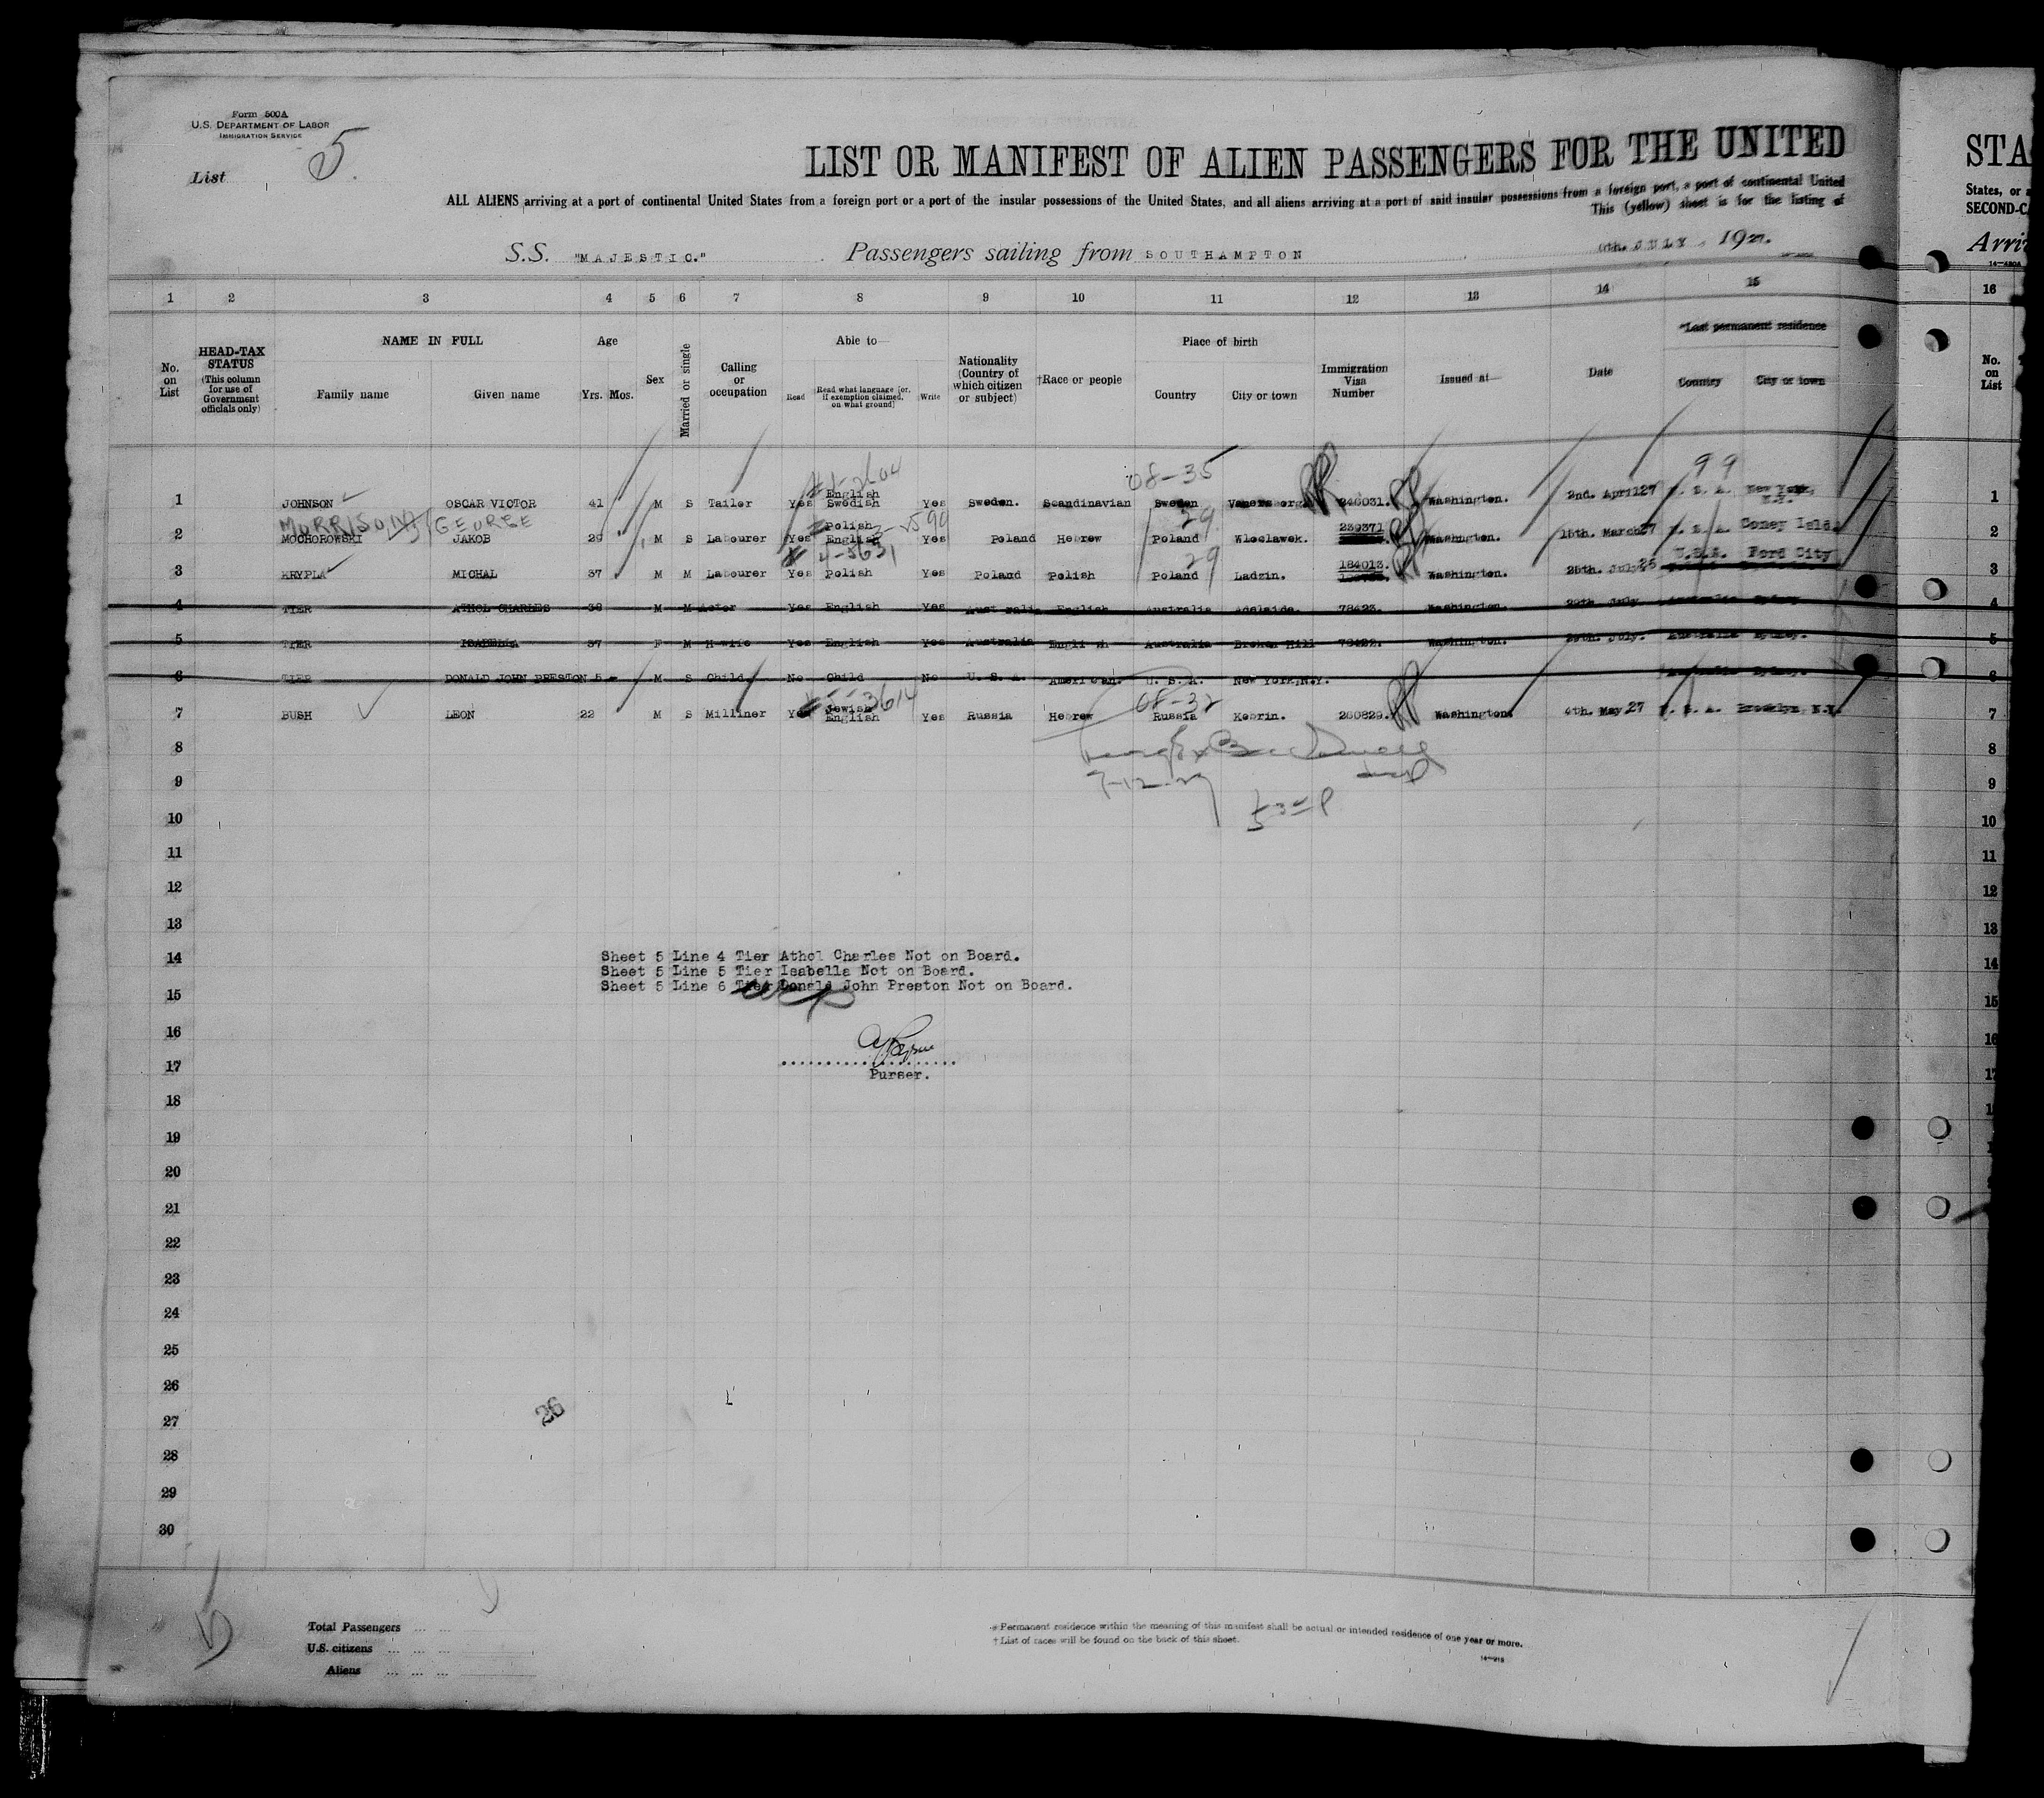 Form 500A
U.S. DEPARTMENT OF LABOR
IMMIGRATION SERVICE
List 5
LIST OR MANIFEST OF ALIEN PASSENGERS FOR THE UNITED
STA
ALL ALIENS arriving at a port of continental United States from a foreign port or a port of the insular possessions of the United States, and all aliens arriving at a port of said insular possessions from a foreign port, a port of continental United
States, or a
This (yellow) sheet is for the listing of
SECOND-CA
S.S. "MAJESTIC." Passengers sailing from SOUTHAMPTON JULY, 1927.
Arri
1 2 3 4 5 6 7 8 9 10 11 12 13 14 15 16
No. on List
HEAD-TAX STATUS (This column for use of Government officials only)
NAME IN FULL
Family name Given name
Age
Yrs. Mos.
Sex
Married or single
Calling or occupation
Able to—
Read
Read what language [or, if exemption claimed, on what ground]
Write
Nationality (Country of which citizen or subject)
†Race or people
Place of birth
Country City or town
Immigration Visa Number
Issued at—
Date
*Last permanent residence
Country City or town
No. on List
08-35
99
1 JOHNSON OSCAR VICTOR 41 M S Tailor Yes English Swedish Yes Sweden. Scandinavian Sweden 246031. Washington. 2nd. April 27 U. S. A. New York, N.Y. 1
MORRISON GEORGE
2 MOCHOROWSKI JAKOB 29 M S Labourer Yes Polish English Yes Poland Hebrew Poland Wloclawek. 239371 Washington. 15th. March 27 U. S. A. Coney Isld. 2
29
4-5631
3 KRYPLA MICHAL 37 M M Labourer Yes Polish Yes Poland Polish Poland Ladzin. 184013. Washington. 25th. July 26 U.S.A. Ford City 3
29
4 TIER ATHOL CHARLES 38 M M Actor Yes English Yes Australia English Australia Adelaide. 78423. Washington. 29th. July. Australia Sydney 4
5 TIER ISABELLA 37 F M H-wife Yes English Yes Australia English Australia Broken Hill 78422. Washington. 29th. July. Australia Sydney. 5
6 TIER DONALD JOHN PRESTON 5 M S Child. No Child No U. S. A. American. U. S. A. New York, N.Y. Australia Sydney. 6
08-32
7 BUSH LEON 22 M S Milliner Yes Jewish English Yes Russia Hebrew Russia Kobrin. 260829. Washington. 4th. May 27 U. S. A. Brooklyn, N.Y. 7
8 8
9 9
10 10
11 11
12 12
13 13
14 14
Sheet 5 Line 4 Tier Athol Charles Not on Board.
Sheet 5 Line 5 Tier Isabella Not on Board.
Sheet 5 Line 6 Tier Donald John Preston Not on Board.
15 15
16 16
17 17
Purser.
18
19
20
21
22
23
24
25
26
26
27
28
29
30
5
Total Passengers ... ...
U.S. citizens ... ... ...
Aliens ... ... ...
* Permanent residence within the meaning of this manifest shall be actual or intended residence of one year or more.
† List of races will be found on the back of this sheet.